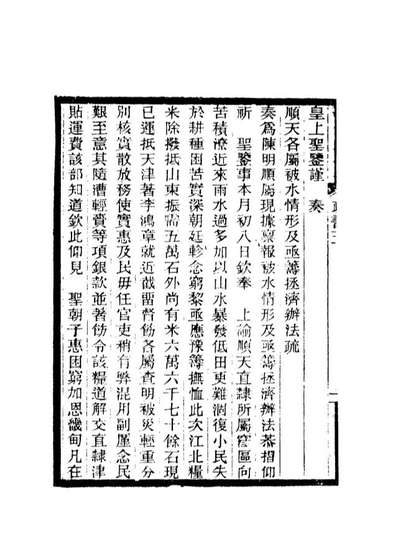 皇上聖鑒謹　奏
順天各屬被水情形及亟籌拯濟辦法疏
奏爲陳明順屬現據稟報被水情形及亟籌拯濟辦法恭摺仰
祈　聖鑒事本月初八日欽奉　上諭順天直隸所屬窪區向
苦積潦近來雨水過多加以山水暴發低田更難涸復小民失
於耕種困苦實深朝廷軫念窮黎亟應豫籌撫恤此次江北糧
米除撥抵山東振需五萬石外尚有米六萬六千七十餘石現
已運抵天津著李鴻章就近截留督飭各屬查明被災輕重分
別核實散放務使實惠及民毋任官吏稍有弊混用副廑念民
艱至意其隨漕輕賫等項銀款並著飭令該糧道解交直隸津
貼運費該部知道欽此仰見　聖朝子惠困窮加恩畿甸凡在